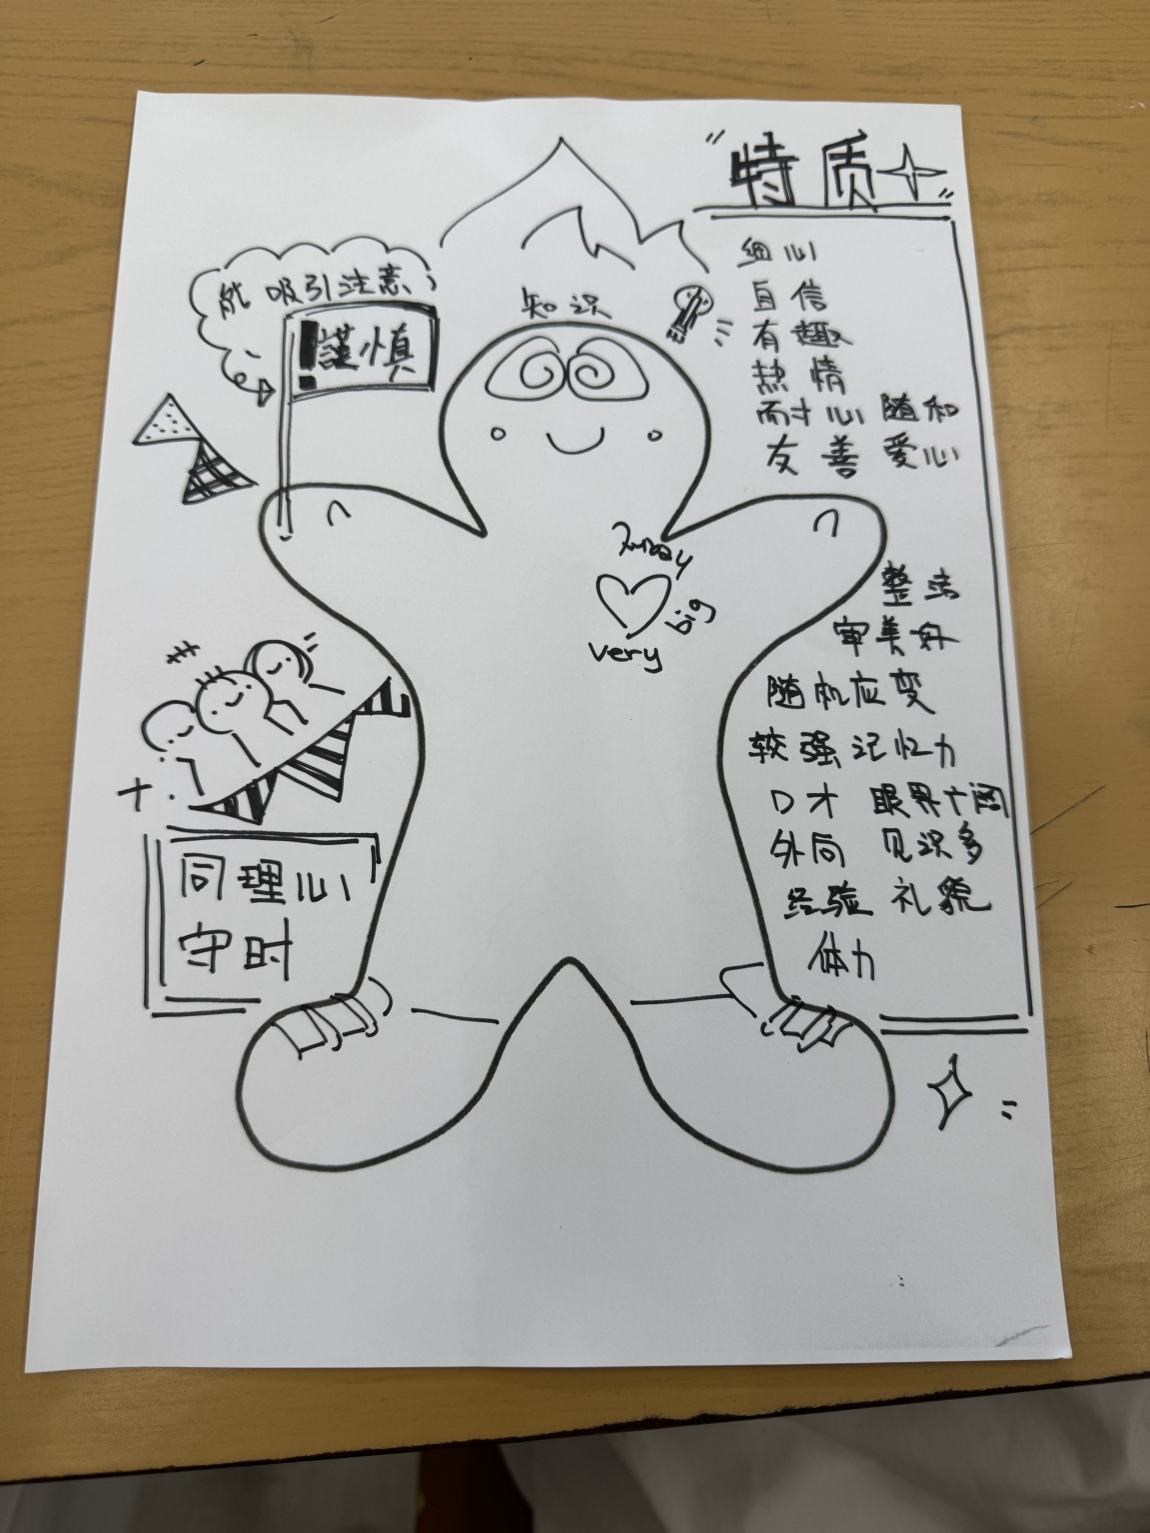 特质
能吸引注意
!謹慎
知识
细心
自信
有趣
热情
耐心 随和
友善 爱心
big
very
整洁
审美好
随机应变
较强记忆力
口才 眼界广阔
外向 见识多
经验 礼貌
体力
同理心
守时